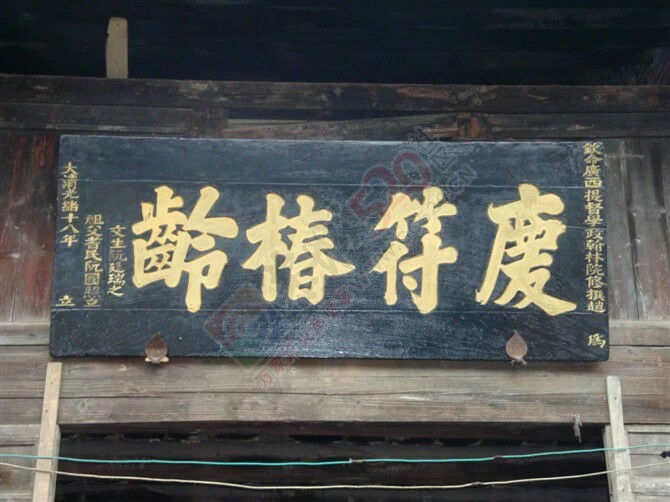 欽命廣西提督學政翰林院修撰趙 為
慶符椿齡
文生阮廷瑞之
祖父耆民阮國
大清光緒十八年 立